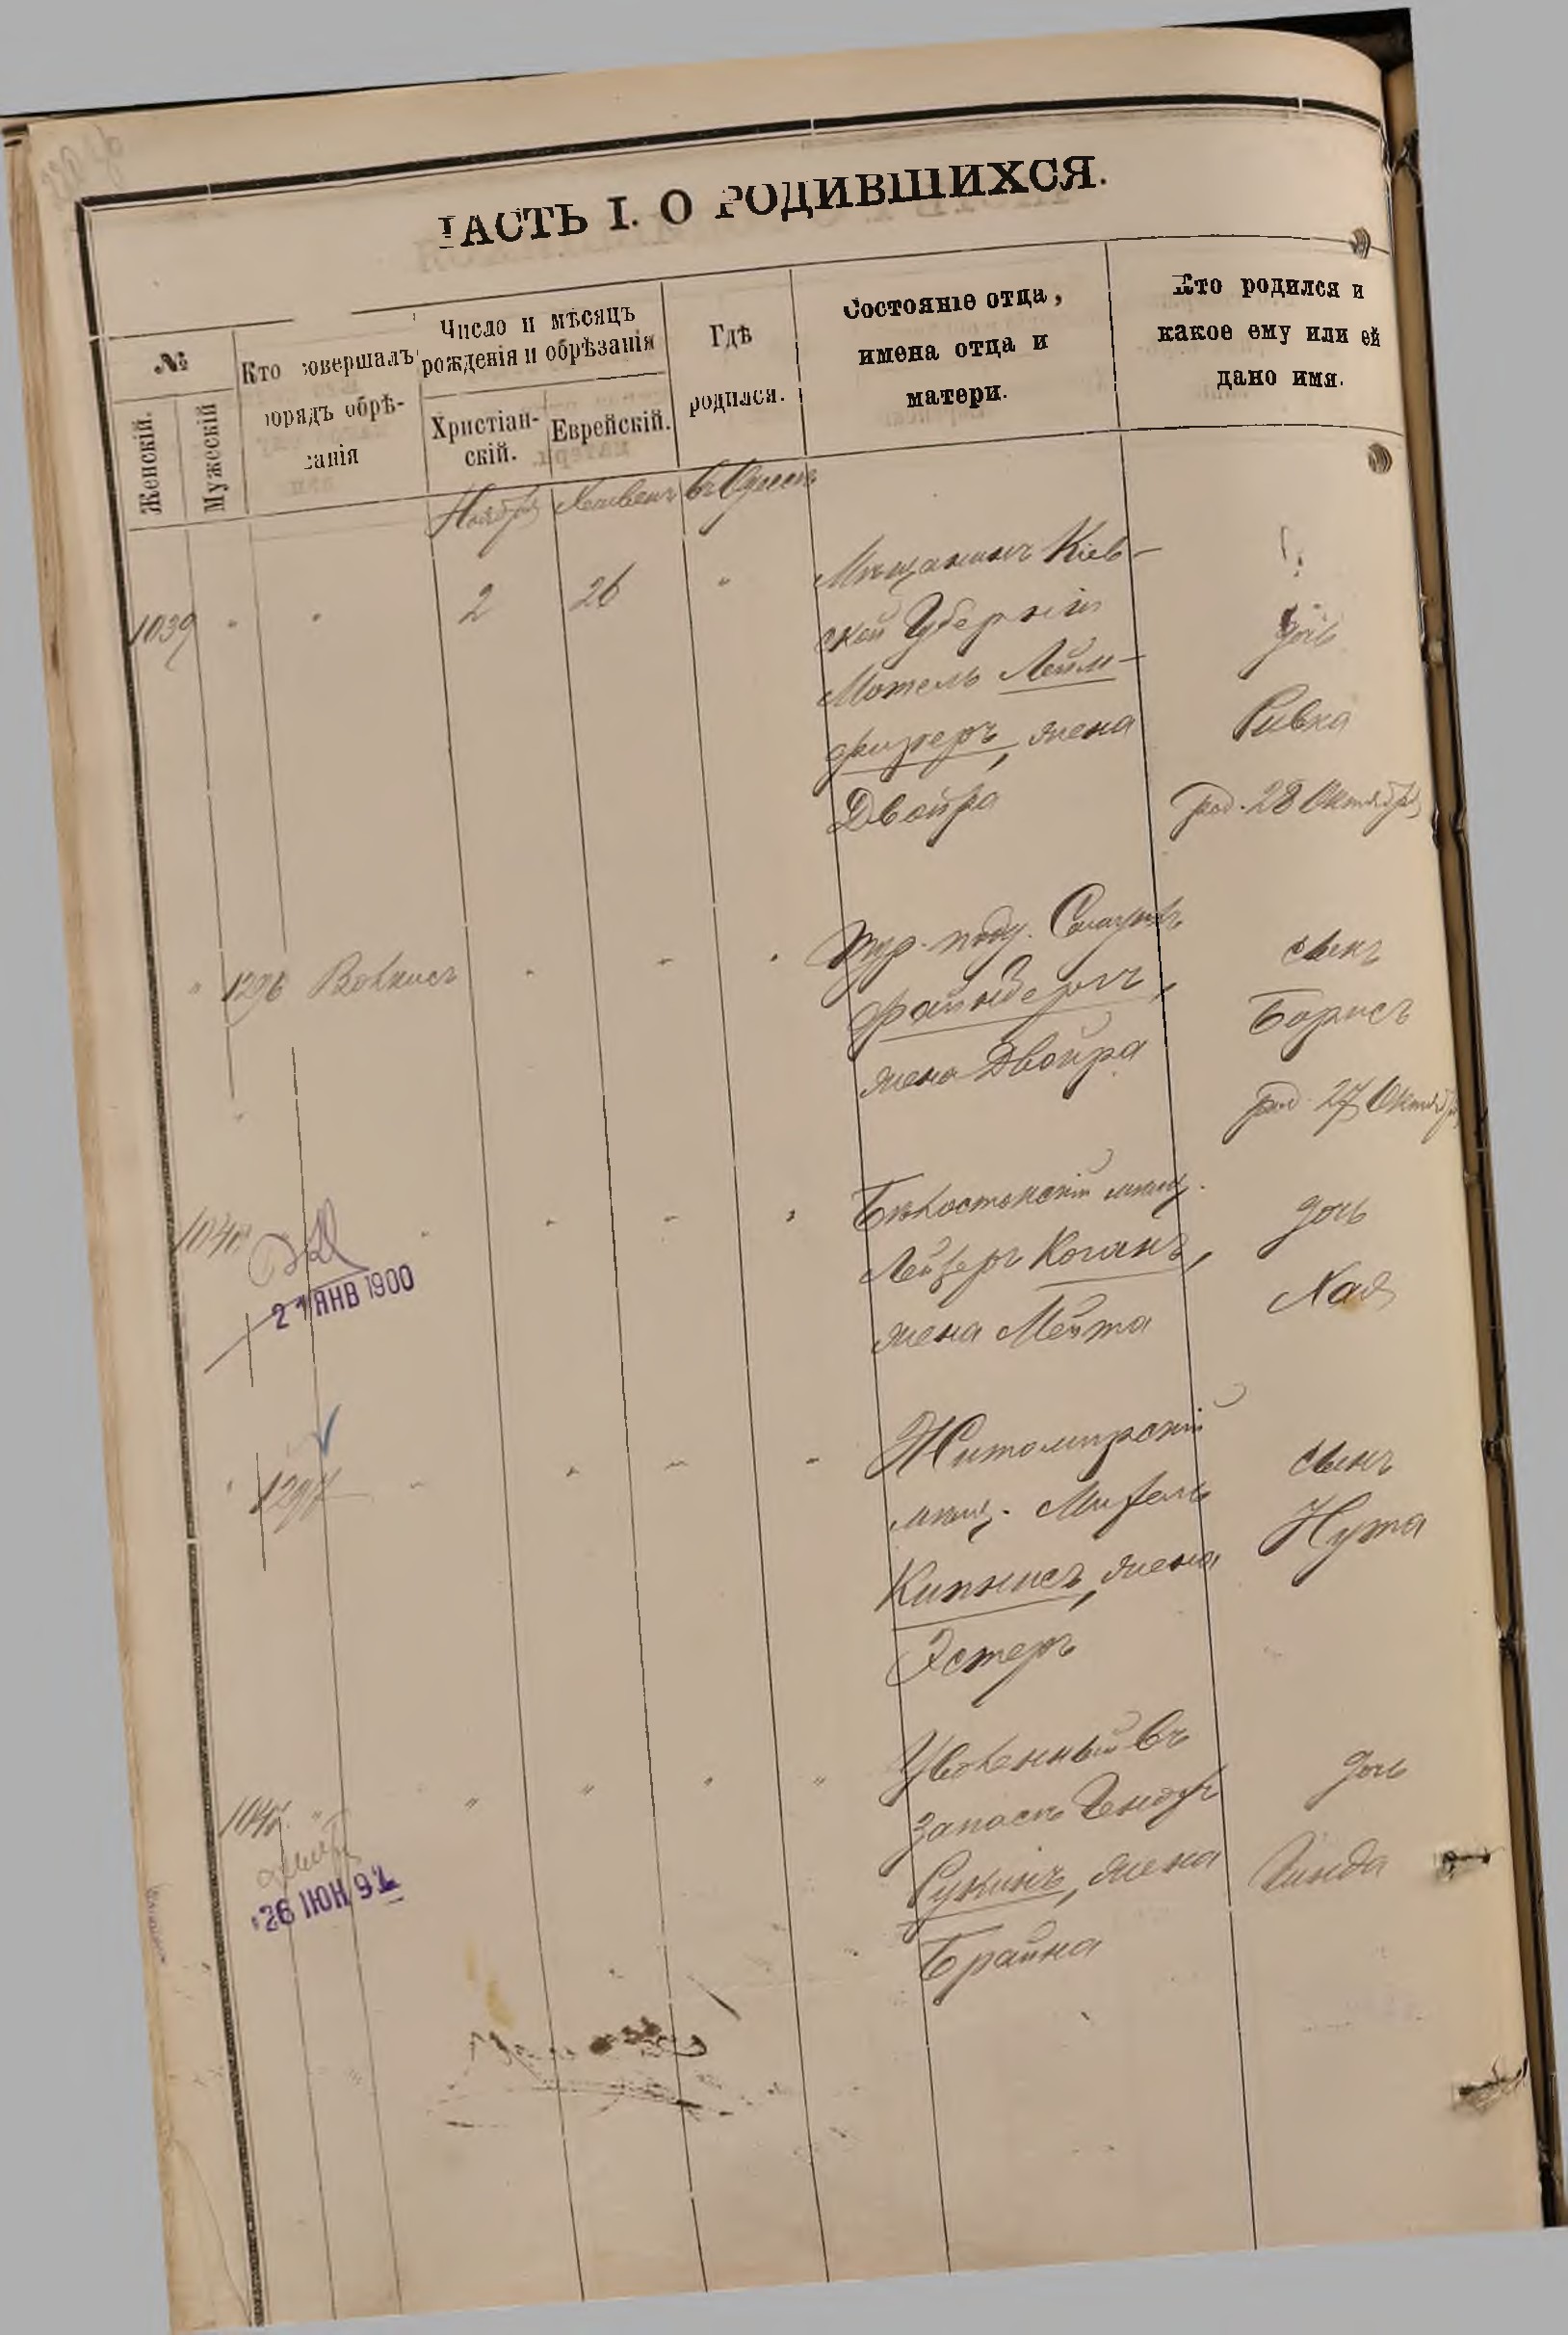 ЧАСТЬ I. О РОДИВШИХСЯ.
№
Женскій.
Мужескій
Кто совершалъ
обрядъ обрѣ-
занія
Число и мѣсяцъ
рожденія и обрѣзанія
Христіан-
скій.
Еврейскій.
Гдѣ
родился.
Состояніе отца,
имена отца и
матери.
Кто родился и
какое ему или ей
дано имя.
Ноябрь Хешвенъ въ Одессѣ
1039 " " 2 26 "
Мѣщанинъ Кіев-
ской Губерніи
Мотель Лейм-
жена
Двойра
дочь
Ривка
род. 28 Октября
" 1296
тур. подд.
Файнбергъ,
жена Двойра
сынъ
Борисъ
род. 27 Октября
1040
21 ЯНВ 1900
Бѣлостокскій мѣщ.
Лейзеръ Коганъ,
жена Мейта
дочь
Хая
1297
Житомирскій
мѣщ.
Кипнисъ, жена
Эстеръ
сынъ
Нута
1041 "
26 ІЮН 91
Уволенный въ
запасъ
жена
Брайна
дочь